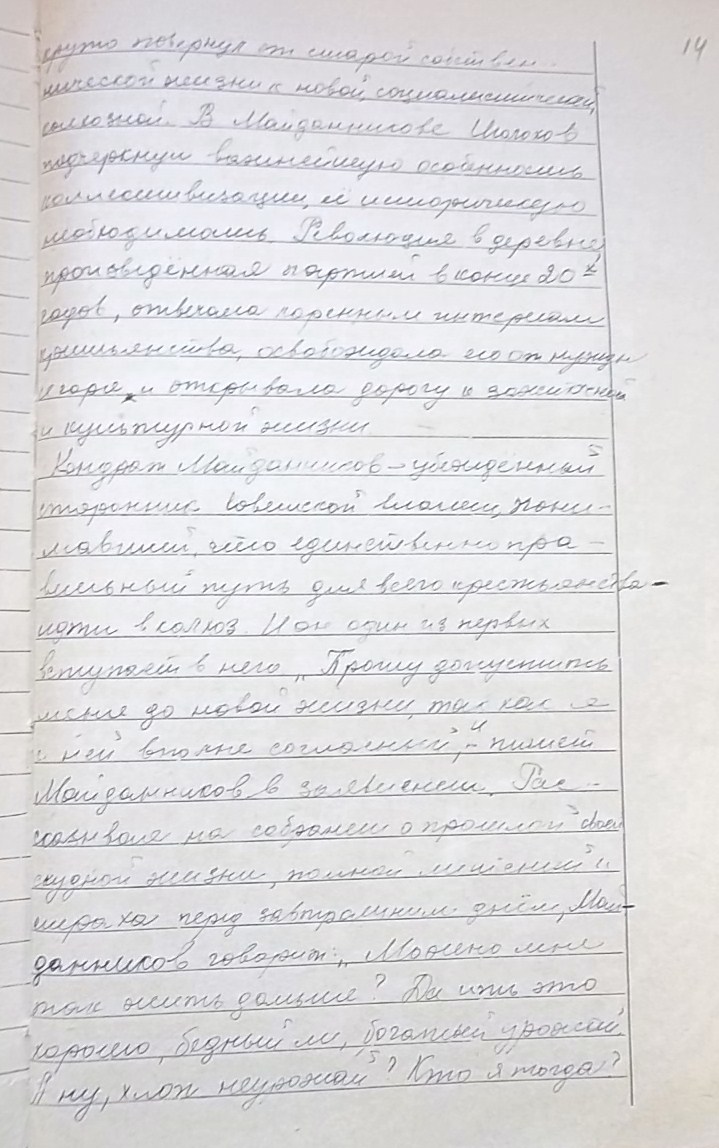 14
круто повернул от старой собствен-
нической жизни к новой, социалистической,
колхозной. В Майданникове Шолохов
подчеркнул важнейшую особенность
коллективизации, её историческую
необходимость. Революция в деревне,
произведённая партией в конце 20х
годов, отвечала коренным интересам
крестьянства, освобождала его от нужды
и горя, и открывала дорогу к зажиточной
и культурной жизни.
Кондрат Майданников – убеждённый
сторонник Советской власти, пони-
мавший, что единственно пра-
вильный путь для всего крестьянства –
идти в колхоз. И он один из первых
вступает в него. „Прошу допустить
меня до новой жизни, так как я
с ней вполне согласный", – пишет
Майданников в заявлении. Рас-
сказывая на собрании о прошлой своей
скудной жизни, полной лишений и
страха перед завтрашним днём, Май-
данников говорит: „Можно мне
так жить дальше? Да ить это
хорошо, бедный ли, богатый урожай.
А ну, хлоп неурожай? Кто я тогда?